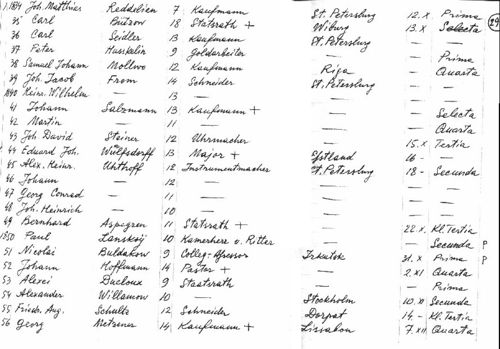 1.1834 Joh. Matthias Reddelien 7 Kaufmann St. Petersburg 12. X Prima
35 Carl Bützow 18 Statsrath + Wiburg 13. X Selecta
36 Carl Seidler 13 Kaufmann St. Petersburg —
37 Peter Husskelin 9 Goldarbeiter — — Prima
38 Samuel Johann Mollwo 12 Kaufmann Riga — Quarta
39 Joh. Jacob From 14 Schneider St. Petersburg — —
1840 Heinr. Wilhelm — 13 — — —
41 Johann Salzmann 13 Kaufmann + — — Selecta
42 Martin — 11 — — — Quarta
43 Joh. David Steiner 12 Uhrmacher — 15. X Tertia
44 Eduard Joh. Wulfsdorff 13 Major + Esstland 16 - —
45 Alex. Heinr. Uhthoff 12 Instrumentmacher St. Petersburg 18 - Secunda
46 Johann — 12 — — —
47 Georg Conrad — 11 — — —
48 Joh. Heinrich — 10 — — —
49 Bernhard Aspegren 11 Statsrath + — 22. X Kl. Tertia
1850 Paul Lanskoj 10 Kamerherr v. Ritter — — Secunda P
51 Nicolai Buldakow 9 Colleg. Assessor Irkutsk 31. X Prima P
52 Johann Hoffmann 14 Pastor + — 2. XI Quarta
53 Alexei Ducloux 9 Staatsrath — — Prima
54 Alexander Willamow 10 — Stockholm 10. XI Secunda
55 Friedr. Aug. Schultz 12 Schneider Dorpat 14. - Kl. Tertia
56 Georg Metzener 14 Kaufmann + Lissabon 7. XII Quarta